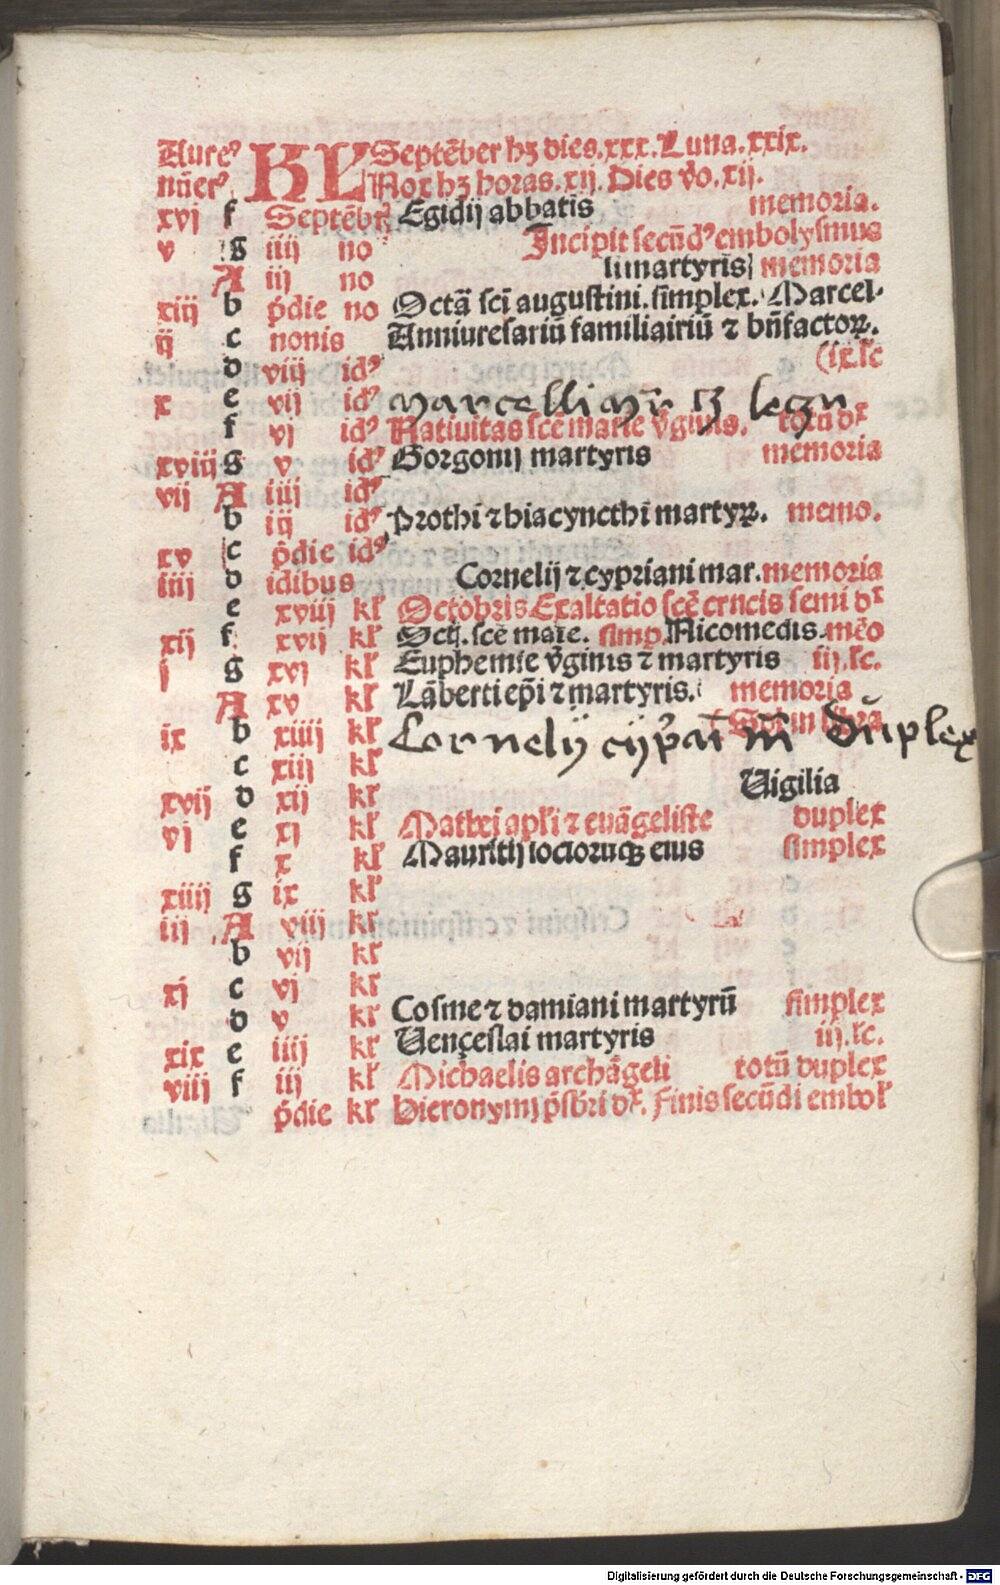 Aureꝰ KL Septēber hꝫ dies.xxx.Luna.xxix.
nūerꝰ Nox hꝫ horas.xij. Dies v̄o.xij.
xvj f Septēbrꝭ Egidij abbatis memoria.
v g iiij no Incipit secūdꝰ embolysmus
A iij no li martyris memoria
xiij b p̄die no Octā sc̄i augustini.simplex. Marcel-
ij c nonis Anniuresariū familiairiū ⁊ bn̄factoꝝ.
d viij idꝰ (ix.lc
x e vij idꝰ marcelli mr̄ iij lecꝫn
f vj idꝰ Natiuitas sc̄e marie v̄ginis. totū dx
xviij g v idꝰ Gorgonij martyris memoria
vij A iiij idꝰ
b iij idꝰ Prothi ⁊ hiacyncthi martyꝝ. memo.
xv c p̄die idꝰ
iiij d idibus Cornelij ⁊ cypriani mar. memoria
e xviij kl' Octobris Exaltatio sc̄e crucis semi dx
xij f xvij kl' Octȷ. sc̄e marie. simp. Nicomedis. mēo
j g xvj kl' Euphemie v̄ginis ⁊ martyris iij.lc.
A xv kl' Lāberti ep̄i ⁊ martyris. memoria
ix b xiiij kl' Cornelij cÿp̄ai m̄ dūplex Sol in libra
c xiij kl'
xvij d xij kl' Uigilia
vj e xj kl' Mathei apl'i ⁊ euāgeliste duplex
f x kl' Mauritij socioruqꝫ eius simplex
xiiij g ix kl'
iij A viij kl'
b vij kl'
xj c vj kl'
d v kl' Cosme ⁊ damiani martyrū simplex
xix e iiij kl' Uençeslai martyris iij.lc.
viij f iij kl' Michaelis archāgeli totū duplex
p̄die kl' Hieronymi p̄sbri dx. Finis secūdi embol'
Digitalisierung gefördert durch die Deutsche Forschungsgemeinschaft - DFG